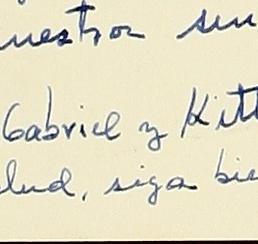 nuestros sin
Gabriel y Kitt
lud, siga bie